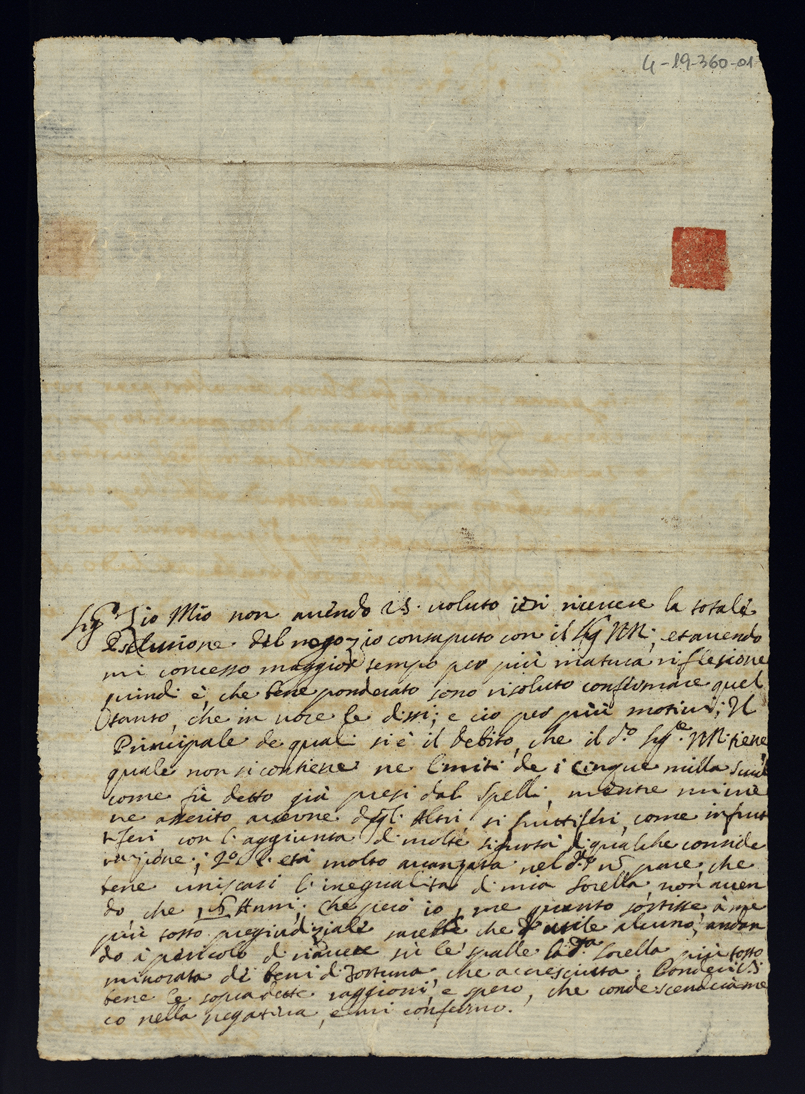 4-19-360-01
Sig.r Zio Mio non avendo V.S. voluto ieri ricevere la totale
Esclusione del negozio consaputo con il Sig NN; et avendo
mi concesso maggior tempo per più matura riflesione
quindi è, che bene ponderato sono risoluto confermare quel
tanto, che in voce le dissi; e ciò per più motivi; Il
Principale de quali si è il debito, che il d.o Sig.re NN: tiene
quale non si contiene ne limiti de i cinque milla scudi
come fù detto già presi dal Spelli, mentre mi vie
ne asserito averne degl'altri si fruttiferi, come infrut
tiferi con l'aggiunta di molte di qualche conside
razione; 2.o l'età molto avanzata nel d.o NN pare, che
bene uniscasi l'inegualità di mia Sorella, non aven
do, che 15 Anni; che però io, me quanto sortisse à me
più tosto pregiudiziale sarebbe che utile alcuno, andan
do à pericolo di riavere sù le spalle la d.a Sorella più tosto
minorata di beni di Fortuna, che accresciuta. Ponderi V.S
bene le sopradette raggioni, e spero, che condescenderà me
co nella negativa, e mi confermo.